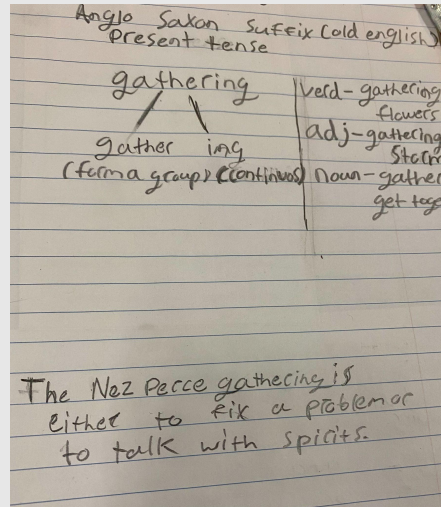 Anglo Saxon Suffix (old english)
Present tense
gathering
gather ing
(form a group) (continuos)
verd - gathering
flowers
adj - gathering
Storm
noun - gather
get tog
The Nez Perce gathering is
either to fix a problem or
to talk with spirits.